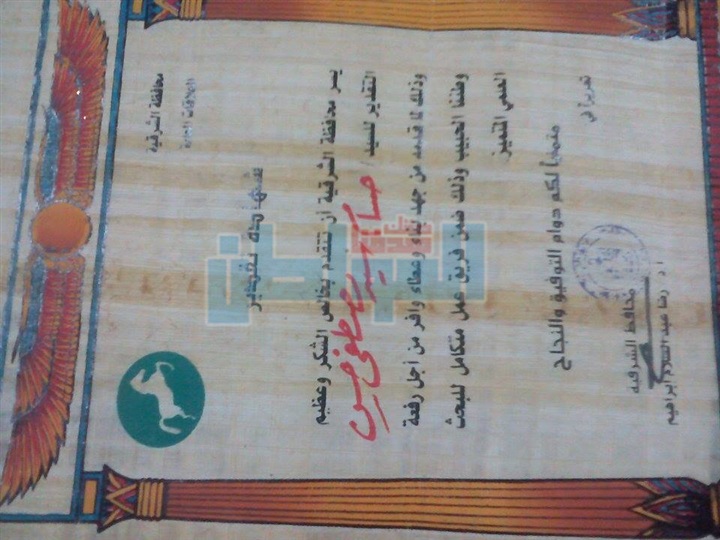 محافظة الشرقية
العلاقات العامة
شهادة تقدير
يسر محافظة الشرقية أن تتقدم بخالص الشكر وعظيم
التقدير للسيد / سيد مصطفى
وذلك لما قدمه من جهد بناء وعطاء وافر من أجل رفعة
وطننا الحبيب وذلك ضمن فريق عمل متكامل للبحث
العلمي المتميز
متمنياً لكم دوام التوفيق والنجاح
تحريراً في
محافظ الشرقية
أ.د / رضا عبد السلام ابراهيم
الوطن